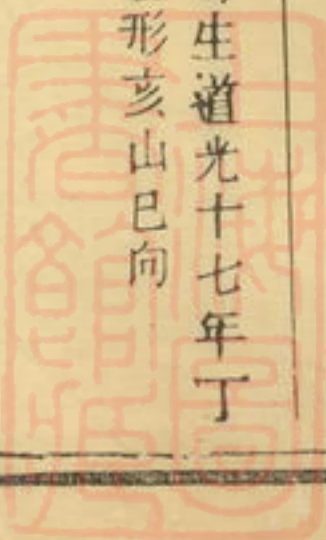 生道光十七年丁
形亥山巳向